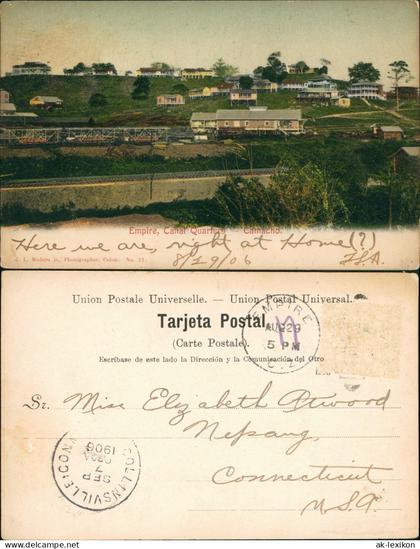 Empire, Canal Quarters Camacho.
J. L. Maduro jr., Photographer, Colon. No. 21.
Here we are, right at Home(?)
8/29/06
Union Postale Universelle. — Union Postal Universal.
Tarjeta Postal
(Carte Postale).
Escríbase de este lado la Dirección y la Comunicación del Otro
EMPIRE
AUG 29
5 PM
C.Z.
Sr. Miss Elizabeth Atwood
Nepaug,
Connecticut
U.S.A.
COLLINSVILLE CONN
SEP
7
1906
ak-lexikon
© ak-lexikon.de